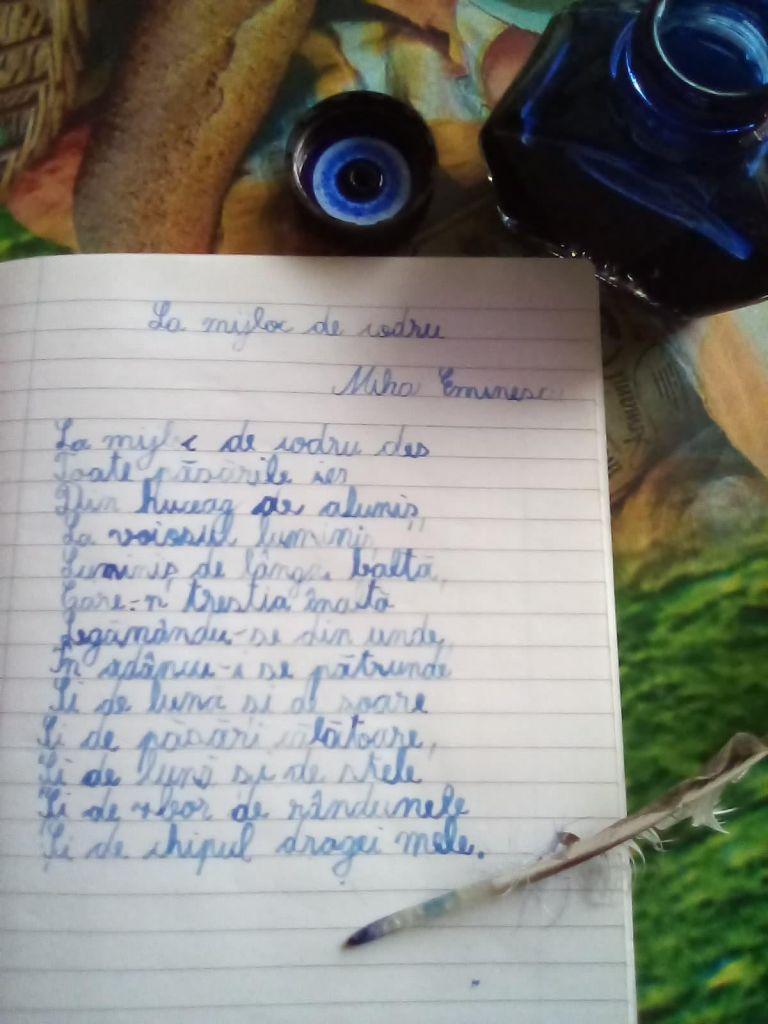 La mijloc de codru
Miha Eminescu
La mijloc de codru des
Toate păsările ies
Din huceag de aluniș,
La voiosul luminiș,
Luminiș de lângă baltă,
Care-n trestia înaltă
Legănându-se din unde,
În adâncu-i se pătrunde
Și de lună și de soare
Și de păsări călătoare,
Și de lună și de stele
Și de zbor de rândunele
Și de chipul dragei mele.